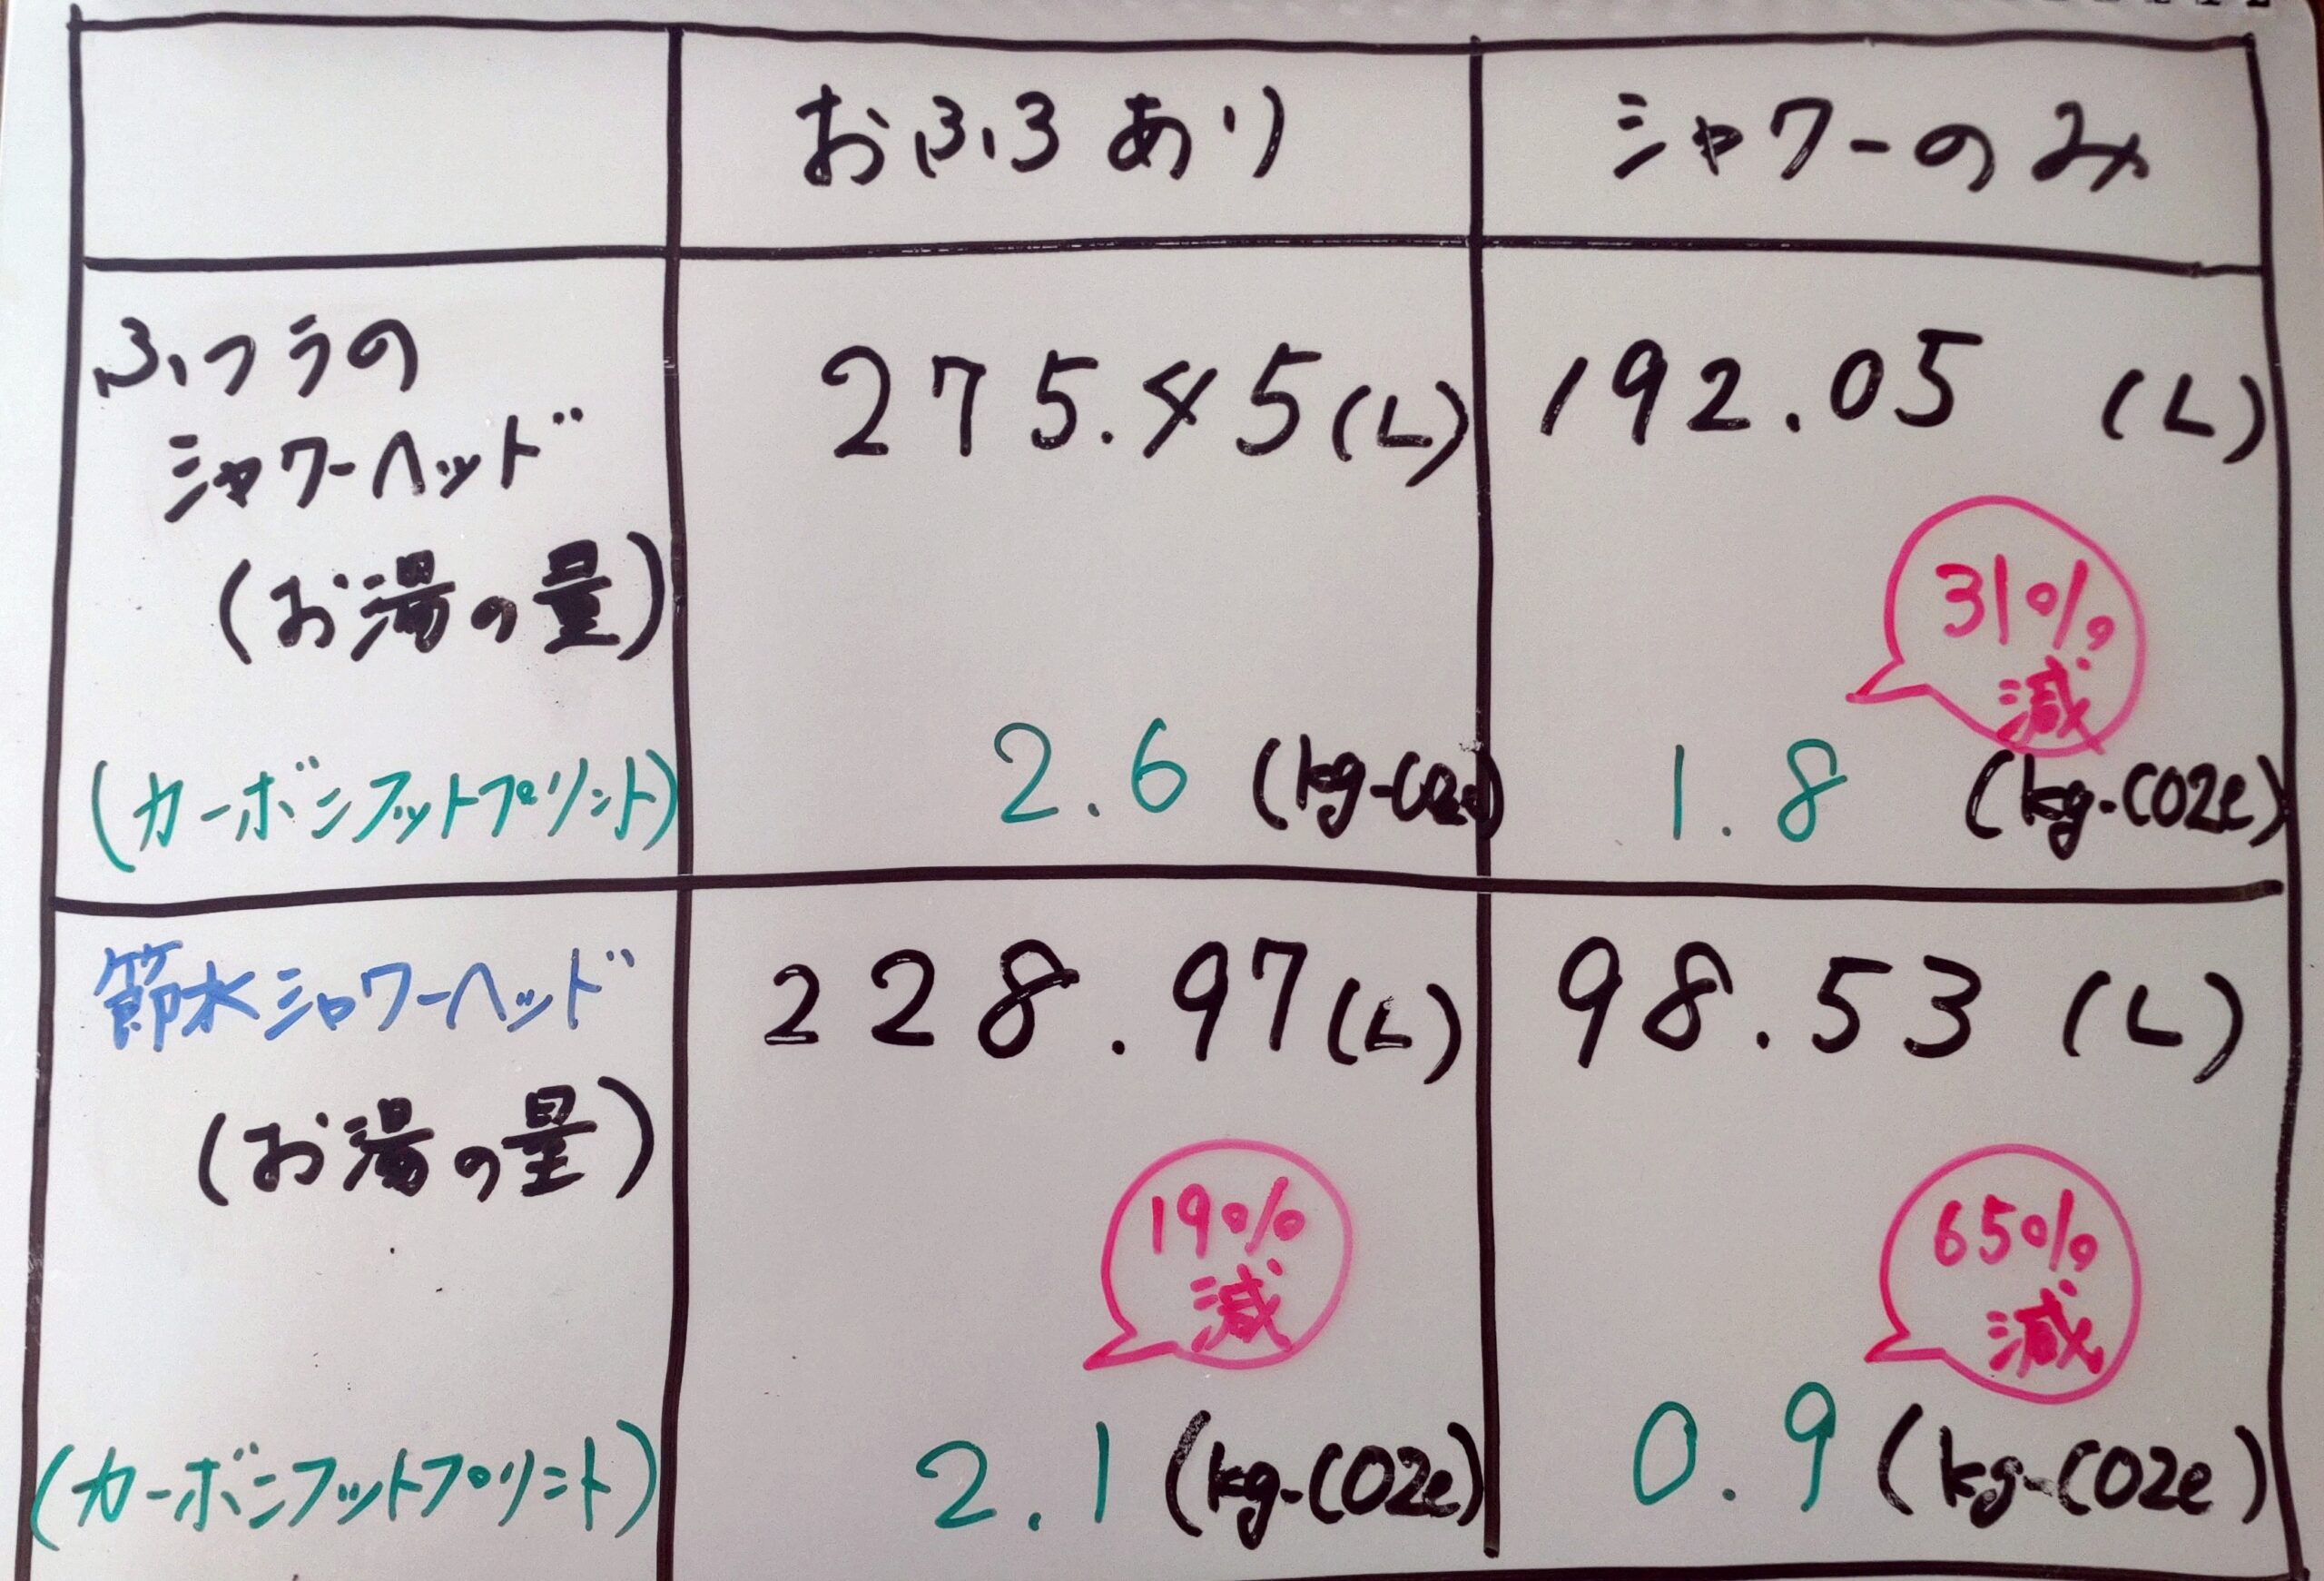 おふろあり
シャワーのみ
ふつうの
シャワーヘッド
(お湯の量)
(カーボンフットプリント)
275.45(L)
2.6 (kg-CO2e)
192.05 (L)
31%
減
1.8 (kg-CO2e)
節水シャワーヘッド
(お湯の量)
(カーボンフットプリント)
228.97(L)
19%
減
2.1 (kg-CO2e)
98.53 (L)
65%
減
0.9 (kg-CO2e)